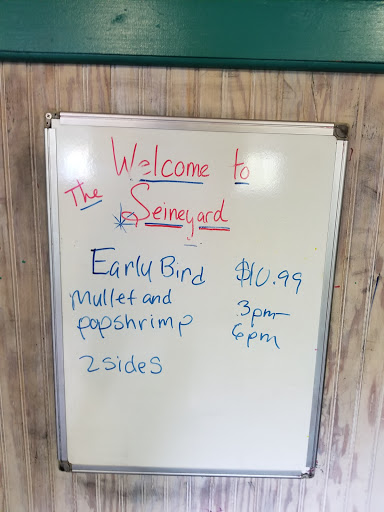 Welcome to
The Seineyard
Early Bird $10.99
Mullet and 3pm-
popshrimp 6pm
2 sides